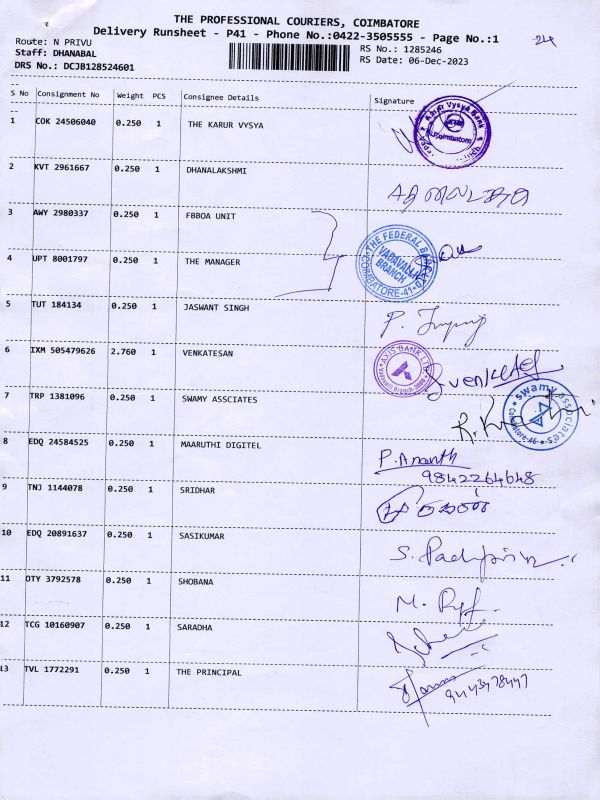 THE PROFESSIONAL COURIERS, COIMBATORE
Delivery Runsheet - P41 - Phone No.:0422-3505555 - Page No.:1
24
Route: N PRIVU
RS No.: 1285246
Staff: DHANABAL
RS Date: 06-Dec-2023
DRS No.: DCJB128524601
S No Consignment No Weight PCS Consignee Details Signature
1 COK 24506040 0.250 1 THE KARUR VYSYA
Karur Vysya Bank
Coimbatore
2 KVT 2961667 0.250 1 DHANALAKSHMI
3 AWY 2980337 0.250 1 FBBOA UNIT
4 UPT 8001797 0.250 1 THE MANAGER
THE FEDERAL BANK
VADAVALLI
BRANCH
COIMBATORE-41
5 TUT 184134 0.250 1 JASWANT SINGH
6 IXM 505479626 2.760 1 VENKATESAN
AXIS BANK LTD
Venkat
7 TRP 1381096 0.250 1 SWAMY ASSCIATES
swamy associates
Coimbatore-46
8 EDQ 24584525 1 MAARUTHI DIGITEL
0.250
P. Ananth
9842264648
9 TNJ 1144078 0.250 1 SRIDHAR
10 EDQ 20891637 0.250 1 SASIKUMAR
11 OTY 3792578 0.250 1 SHOBANA
12 TCG 10160907 0.250 1 SARADHA
13 TVL 1772291 0.250 1 THE PRINCIPAL
9443478447